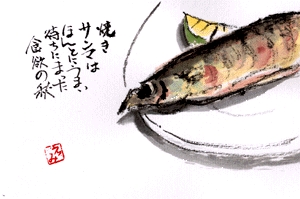 焼き
サンマは
ほんとにうまい
待ちにまった
食欲の秋